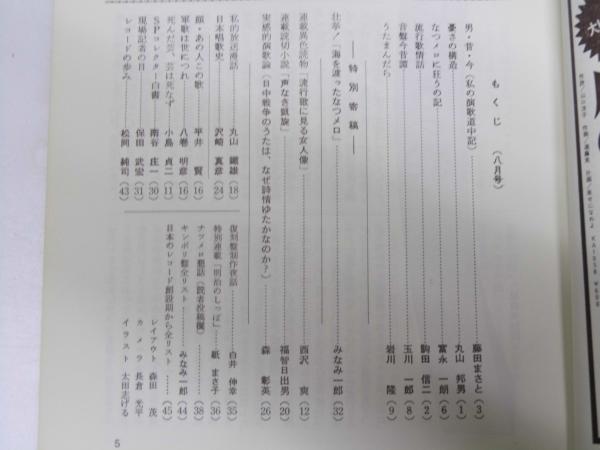 もくじ （八月号）
男・昔・今（私の演歌道中記） 藤田まさと（3）
憂さの構造 丸山 邦男（1）
なつメロに狂うの記 富永 一朗（6）
流行歌情話 駒田 信二（2）
音盤今昔譚 玉川 一郎（8）
うたまんだら 岩川 隆（9）
―特別寄稿―
壮挙／「海を渡ったなつメロ」 みなみ一郎（32）
連載異色読物「流行歌に見る女人像」 西沢 爽（12）
連載読切小説「声なき凱旋」 福智日出男（20）
実感的演歌論（日中戦争のうたは、なぜ詩情ゆたかなのか？） 森 彰英（26）
私的放送湾話 丸山 鐵雄（18）
日本唱歌史 沢崎 真彦（24）
顔・あの人この歌 平井 賢（16）
軍歌は世につれ 八巻 明彦（16）
死んだ芸、芸は死なず 小島 貞二（11）
SPコレクター白書 南谷 庄一（30）
現場記者の目 保田 武宏（31）
レコードの歩み 松岡 純司（43）
復刻盤制作夜話 白井 伸幸（35）
特別連載「明治のしっぽ」 紙 まさ子（36）
ナツメロ懇話（読者投稿欄）（38）
キンポリ盤全リスト みなみ一郎（44）
日本のレコード創設期から全リスト（45）
レイアウト 森田 茂
カメラ 長倉 光平
イラスト 太田志げる
5